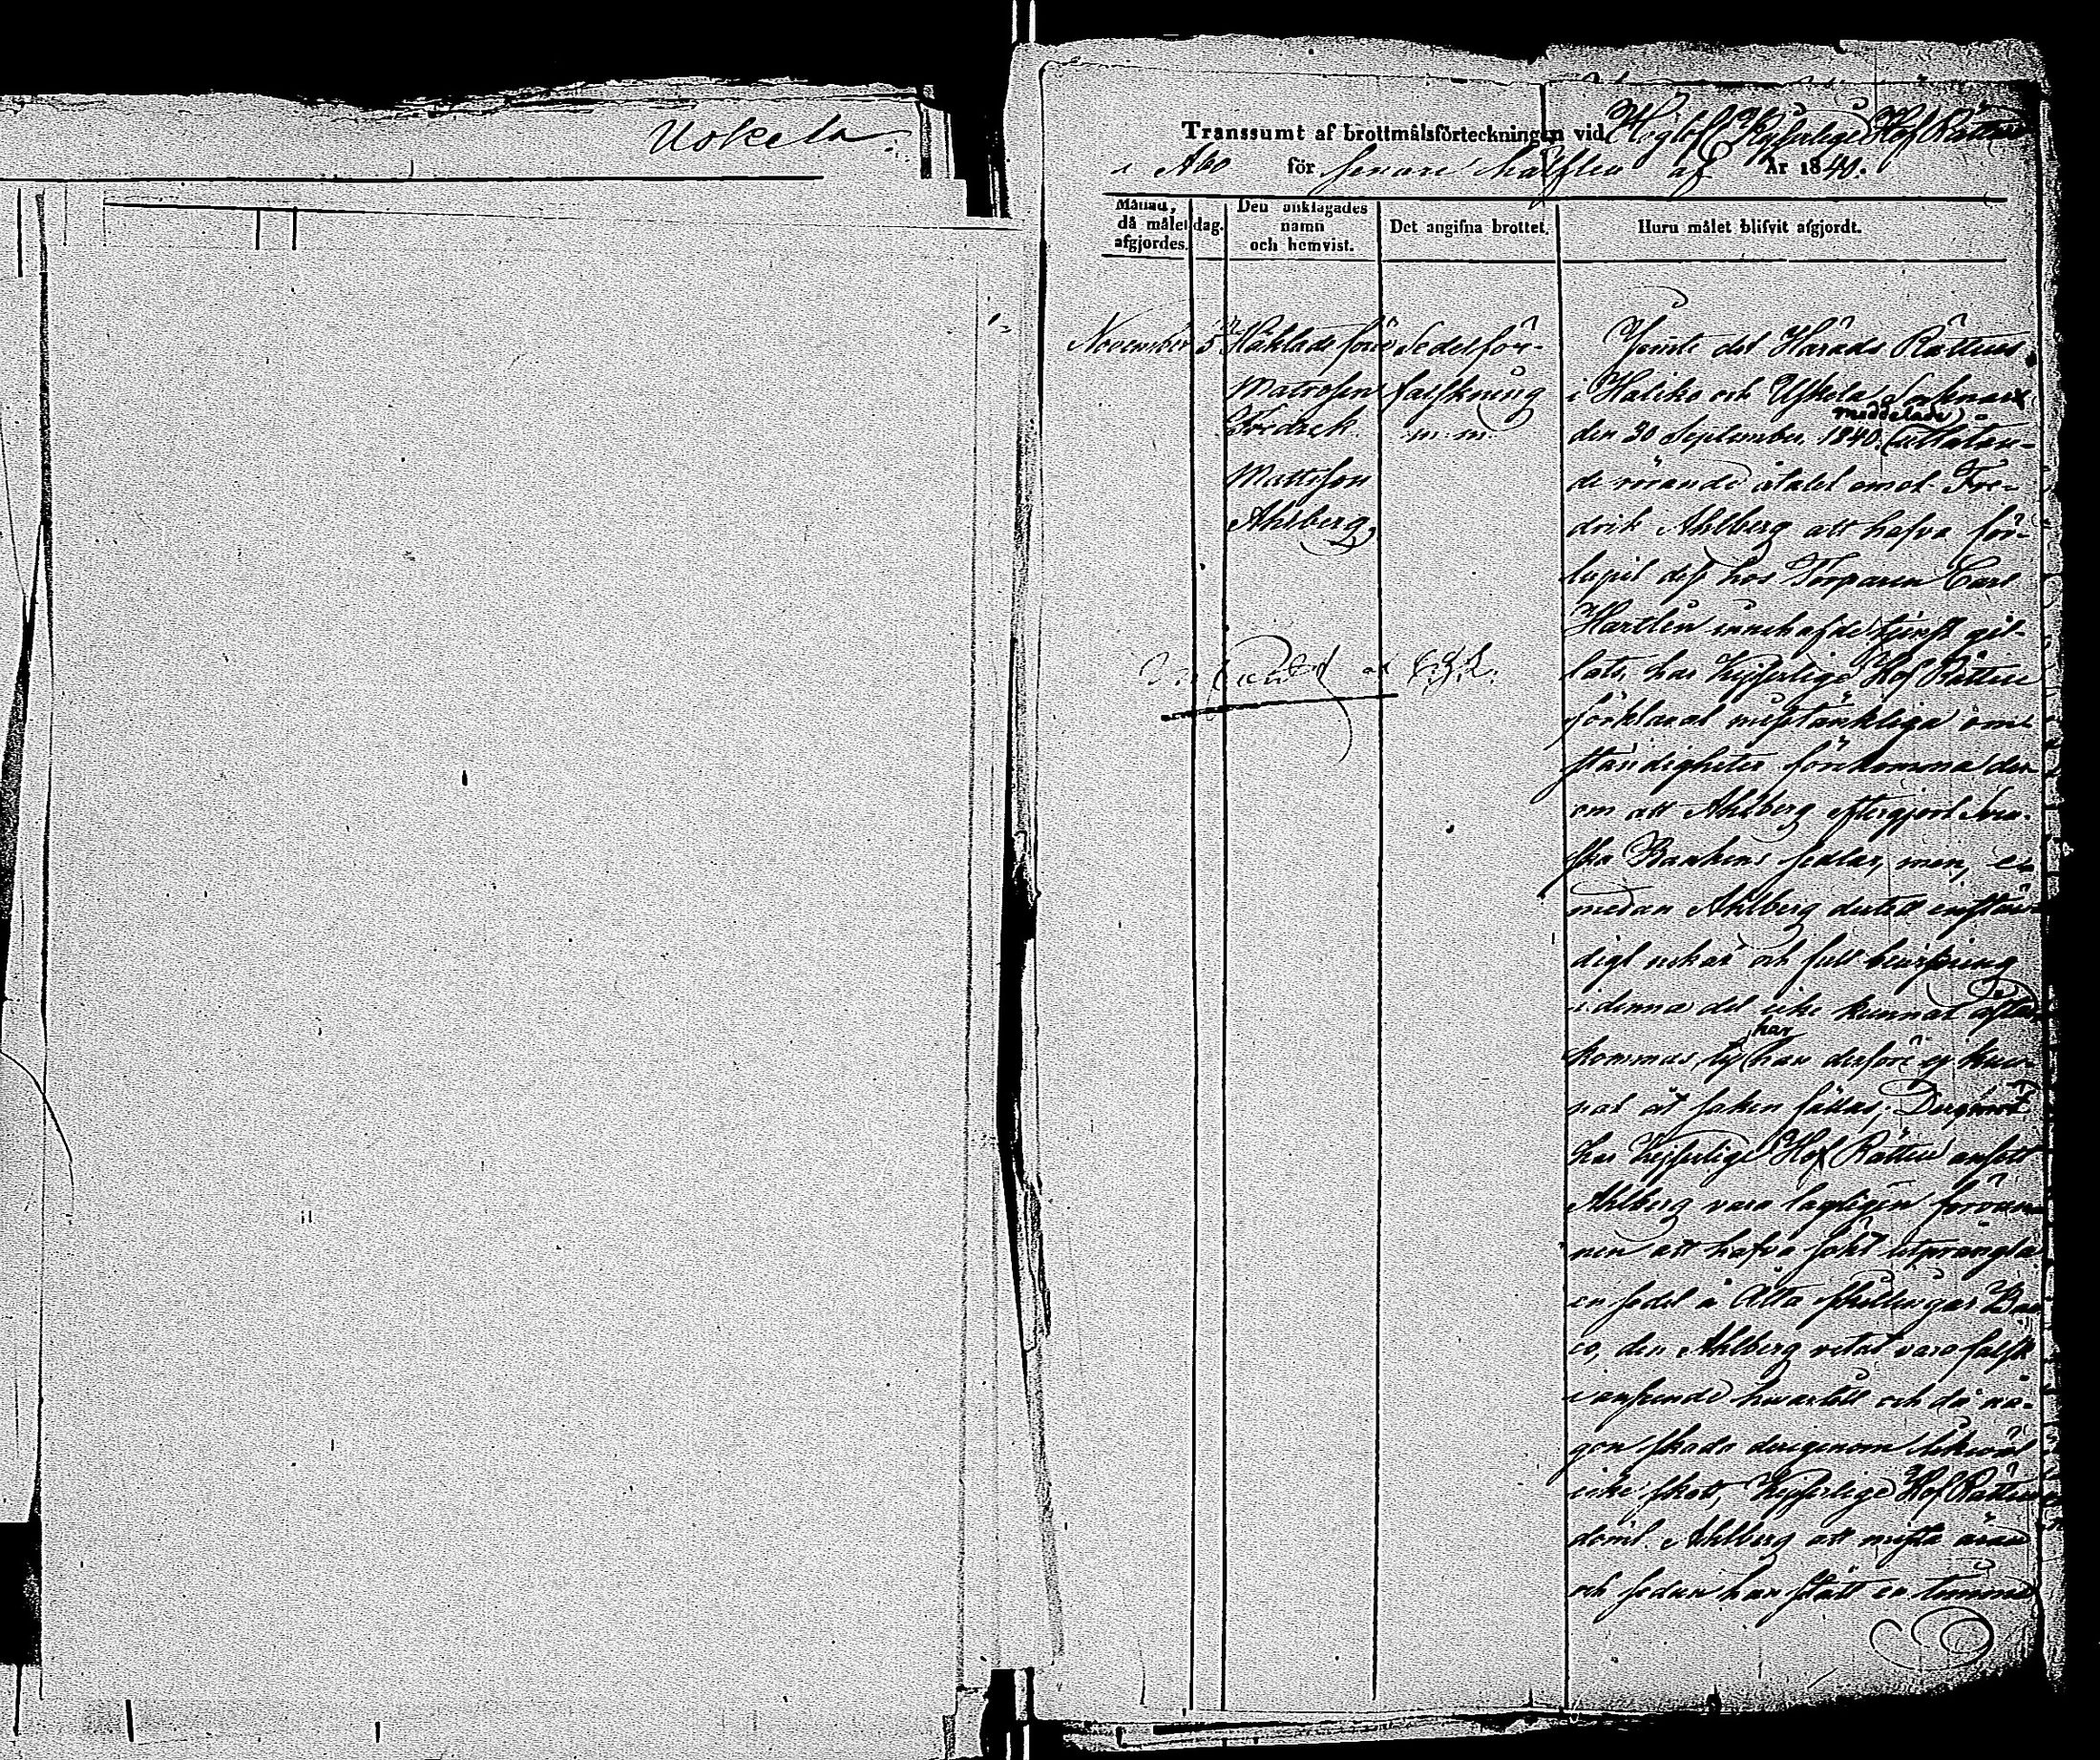 Uskela.
Transsumt af brottmålsförteckningen vid Höglofl. Kejserlige Hof Rätten
i Åbo för senare hälften af År 1840.
Månad, då målet afgjordes.
dag.
Den anklagades namn och hemvist.
Det angifna brottet.
Huru målet blifvit afgjordt.
November
5
Häktade förre
Matrosen
Fredrek
Mattsson
Ahlberg,
Sedelför-
falskning
m. m.
Jemte det Härads Rättens
i Haliko och Uskela Soknars
den 30 September 1840 meddelade utlåtan-
de rörande åtalet emot Fre-
drik Ahlberg att hafva för-
lupit dess hos Torparen Carl
Hartlin innehafde tjenst gil-
lats, har Kejserlige Hof Rätten
förklarat misstänkliga om-
ständigheter förekomma der-
om att Ahlberg eftergjort Sven-
ska Bankens sedlar, men, e-
medan Ahlberg dertill enstän-
digt nekar och full bevisning
i denna del icke kunnat åstad-
kommas, ty har han derföre ej kun-
nat åt saken fällas; Deremot
har Kejserlige Hof Rätten ansett
Ahlberg vara lagligen förvun-
nen att hafva sökt utprångla
en sedel å Åtta skillingar Ban-
co, den Ahlberg vetat vara falsk
i anseende hvartill och då nå-
gon skada derigenom likväl
icke skett, Kejserlige Hof Rätten
dömt Ahlberg att mista äran
och sedan han stått en timme